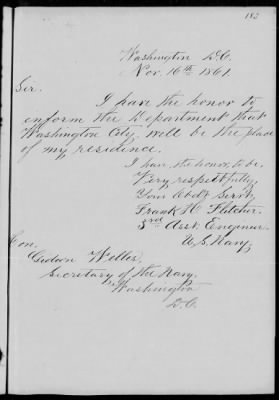 183
Washington D.C.
Nov. 16th 1861
Sir.
I have the honor to
inform the Department that
Washington City will be the place
of my residence.
I have the honor, to be.
Very respectfully
Your Obdt Servt.
Frank H. Fletcher.
3rd Asst. Engineer.
U.S. Navy.
Hon.
Gideon Welles.
Secretary of the Navy.
Washington
D.C.